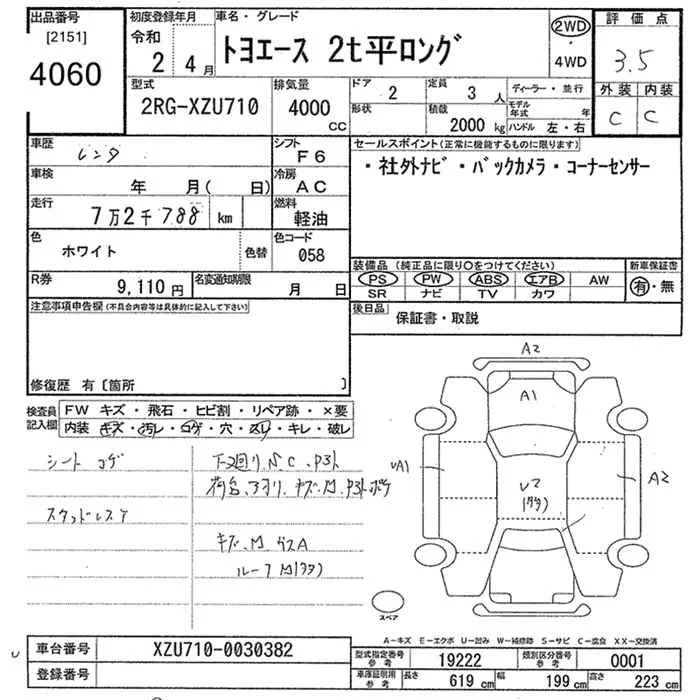 出品番号
[2151]
4060
初度登録年月
令和
2 4月
車名・グレード
トヨエース 2t平ロング
2WD
・
4WD
評価点
3.5
外装 内装
C C
型式
2RG-XZU710
排気量
4000
CC
ドア 2
定員 3人
ディーラー・並行
形状
積載
2000 kg
モデル年式 年
ハンドル 左・右
車歴
レンタ
シフト
F6
車検
年 月( 日)
冷房
AC
走行
7万2千788 km
燃料
軽油
色
ホワイト
色替
色コード
058
R券
9,110円
名変通知期限
月 日
セールスポイント(正常に機能するものに限ります)
・社外ナビ・バックカメラ・コーナーセンサー
装備品(純正品に限り〇をつけてください)
PS PW ABS エアB AW
SR ナビ TV カワ
新車保証書
有・無
後日品
保証書・取説
注意事項申告欄(不具合内容等は具体的に記入して下さい)
修復歴 有〔箇所 〕
検査員記入欄
FW キズ・飛石・ヒビ割・リペア跡・×要
内装 キズ・汚レ・コゲ・穴・スレ・キレ・破レ
シート コゲ
スタッドレスタ
下廻リ
荷台、アオリ、キズ
キズ
ルーフ
A2
A1
A1
A2
スペア
A-キズ E-エクボ U-凹み W-補修跡 S-サビ C-腐食 XX-交換済
車台番号
XZU710-0030382
登録番号
型式指定番号 参考
19222
類別区分番号 参考
0001
車庫証明用 参考
長さ 619 cm
幅 199 cm
高さ 223 cm